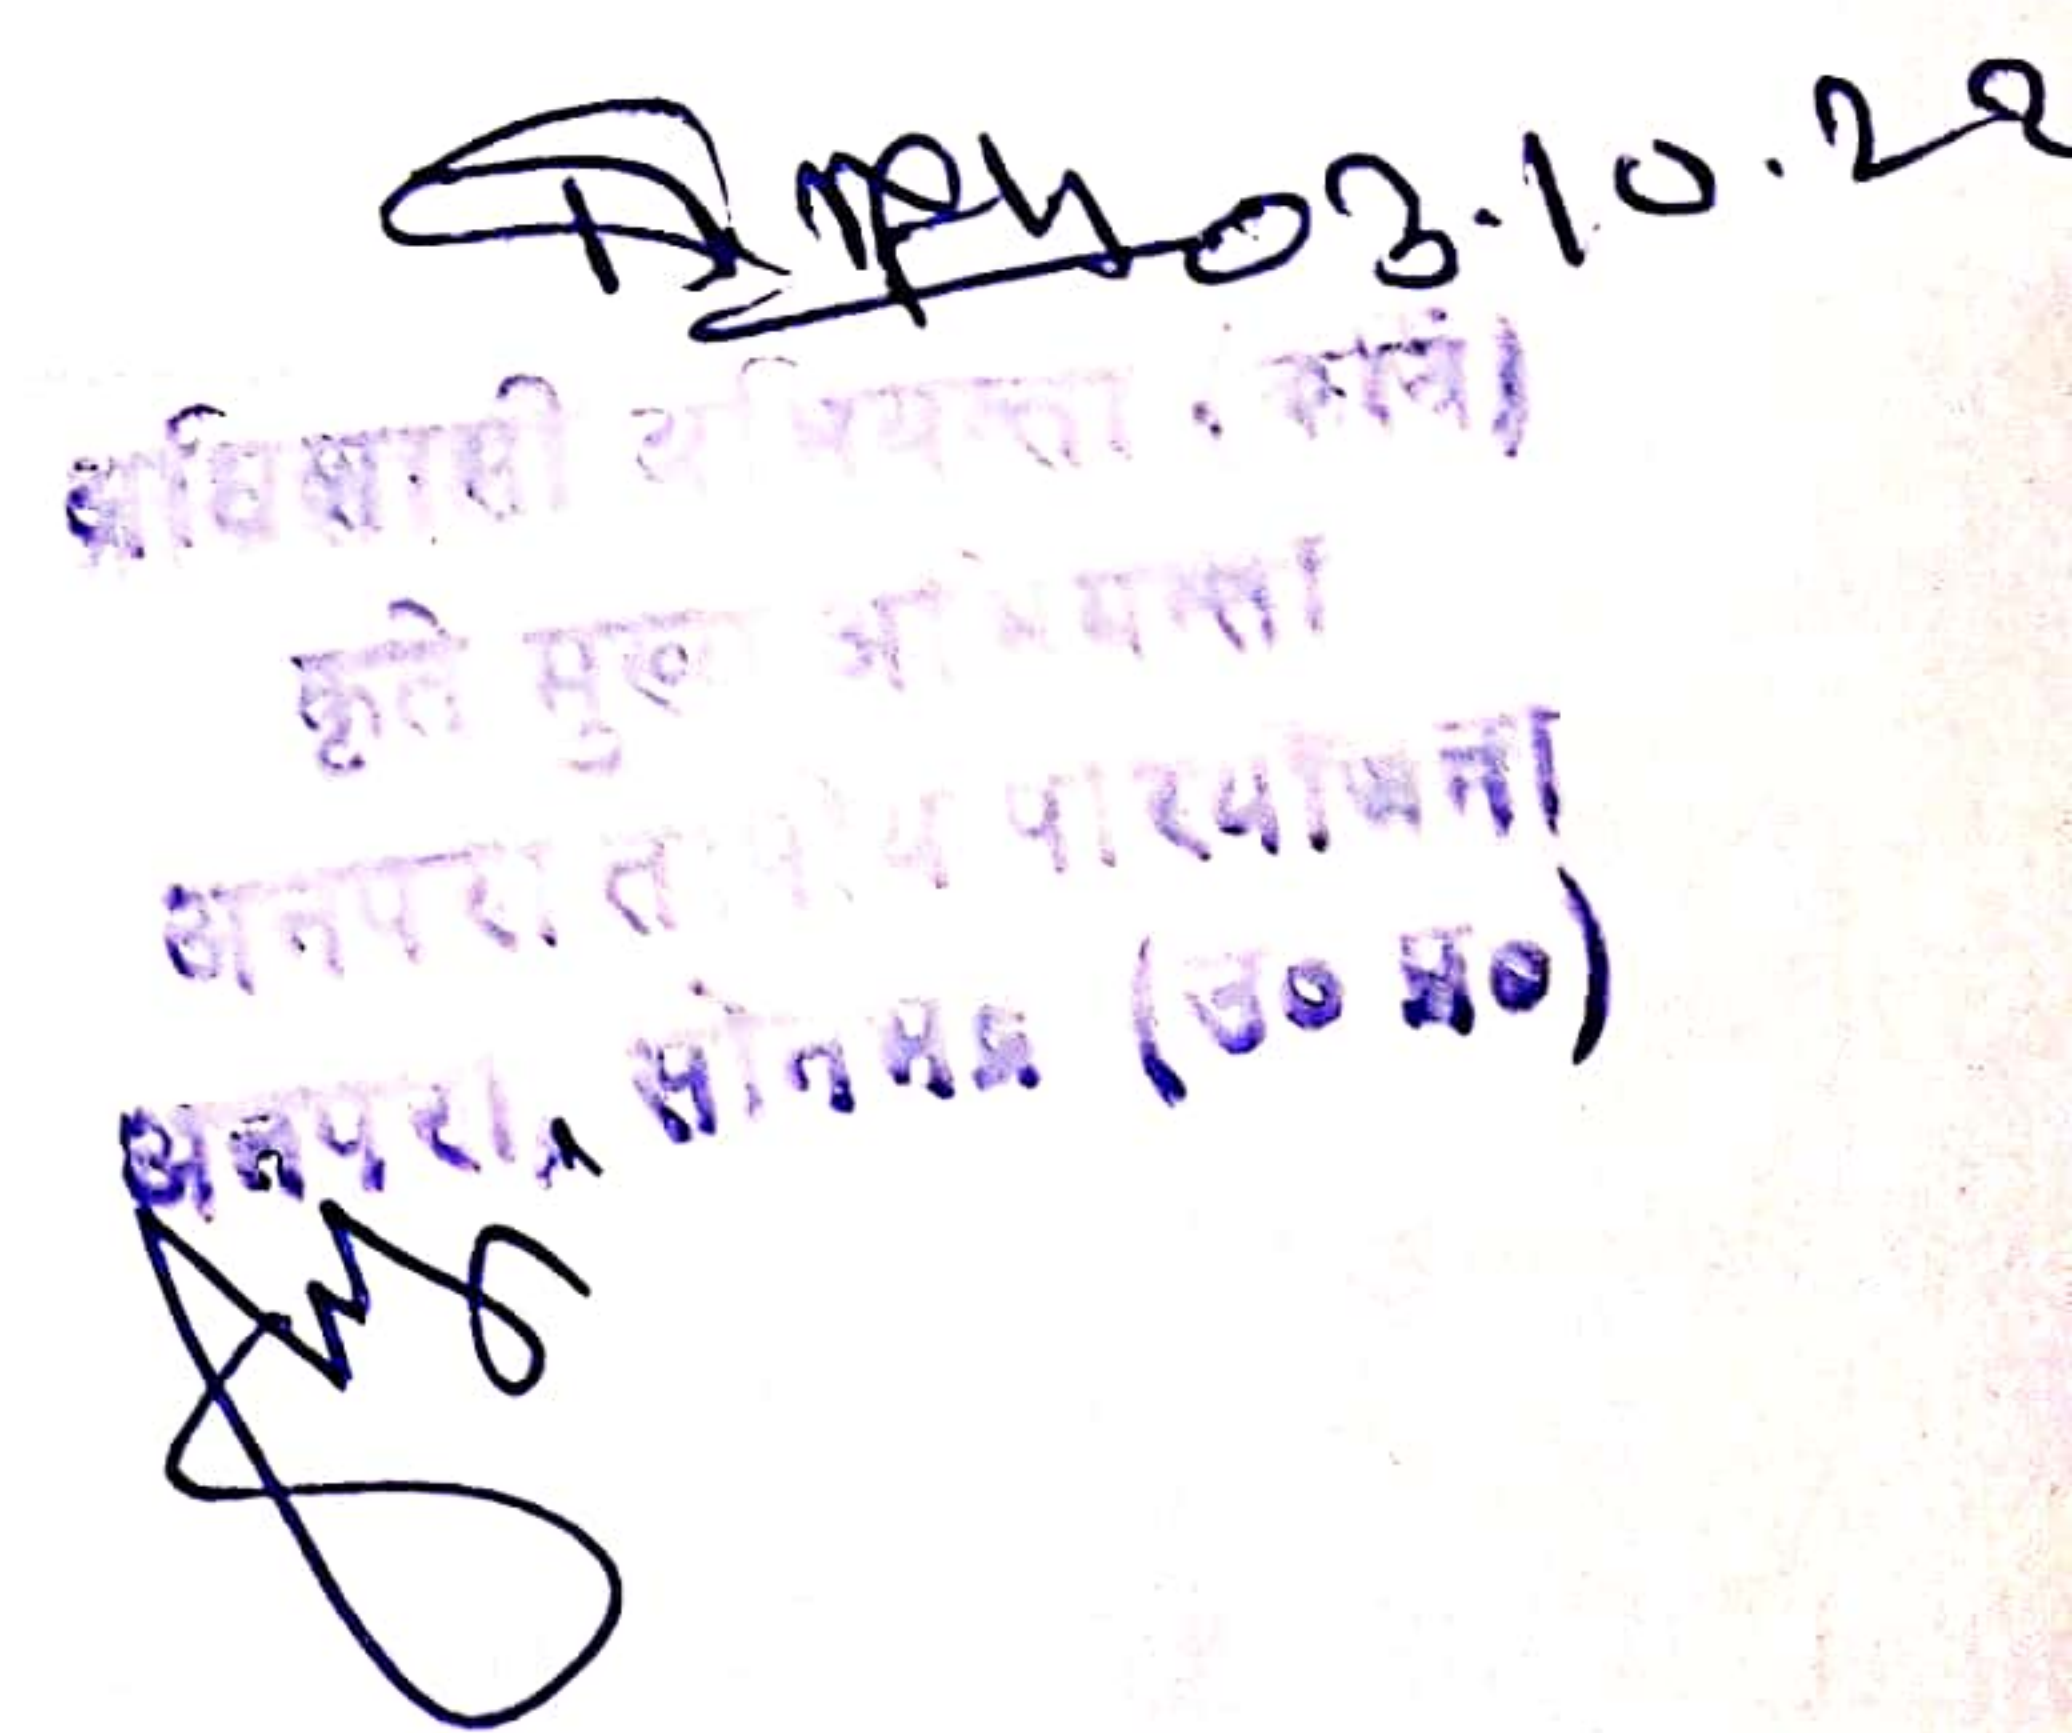 03.10.22
अधिशासी अभियन्ता
कृते मुख्य अभियन्ता
अनपरा तापीय परियोजना
अनपरा, सोनभद्र (उ० प्र०)